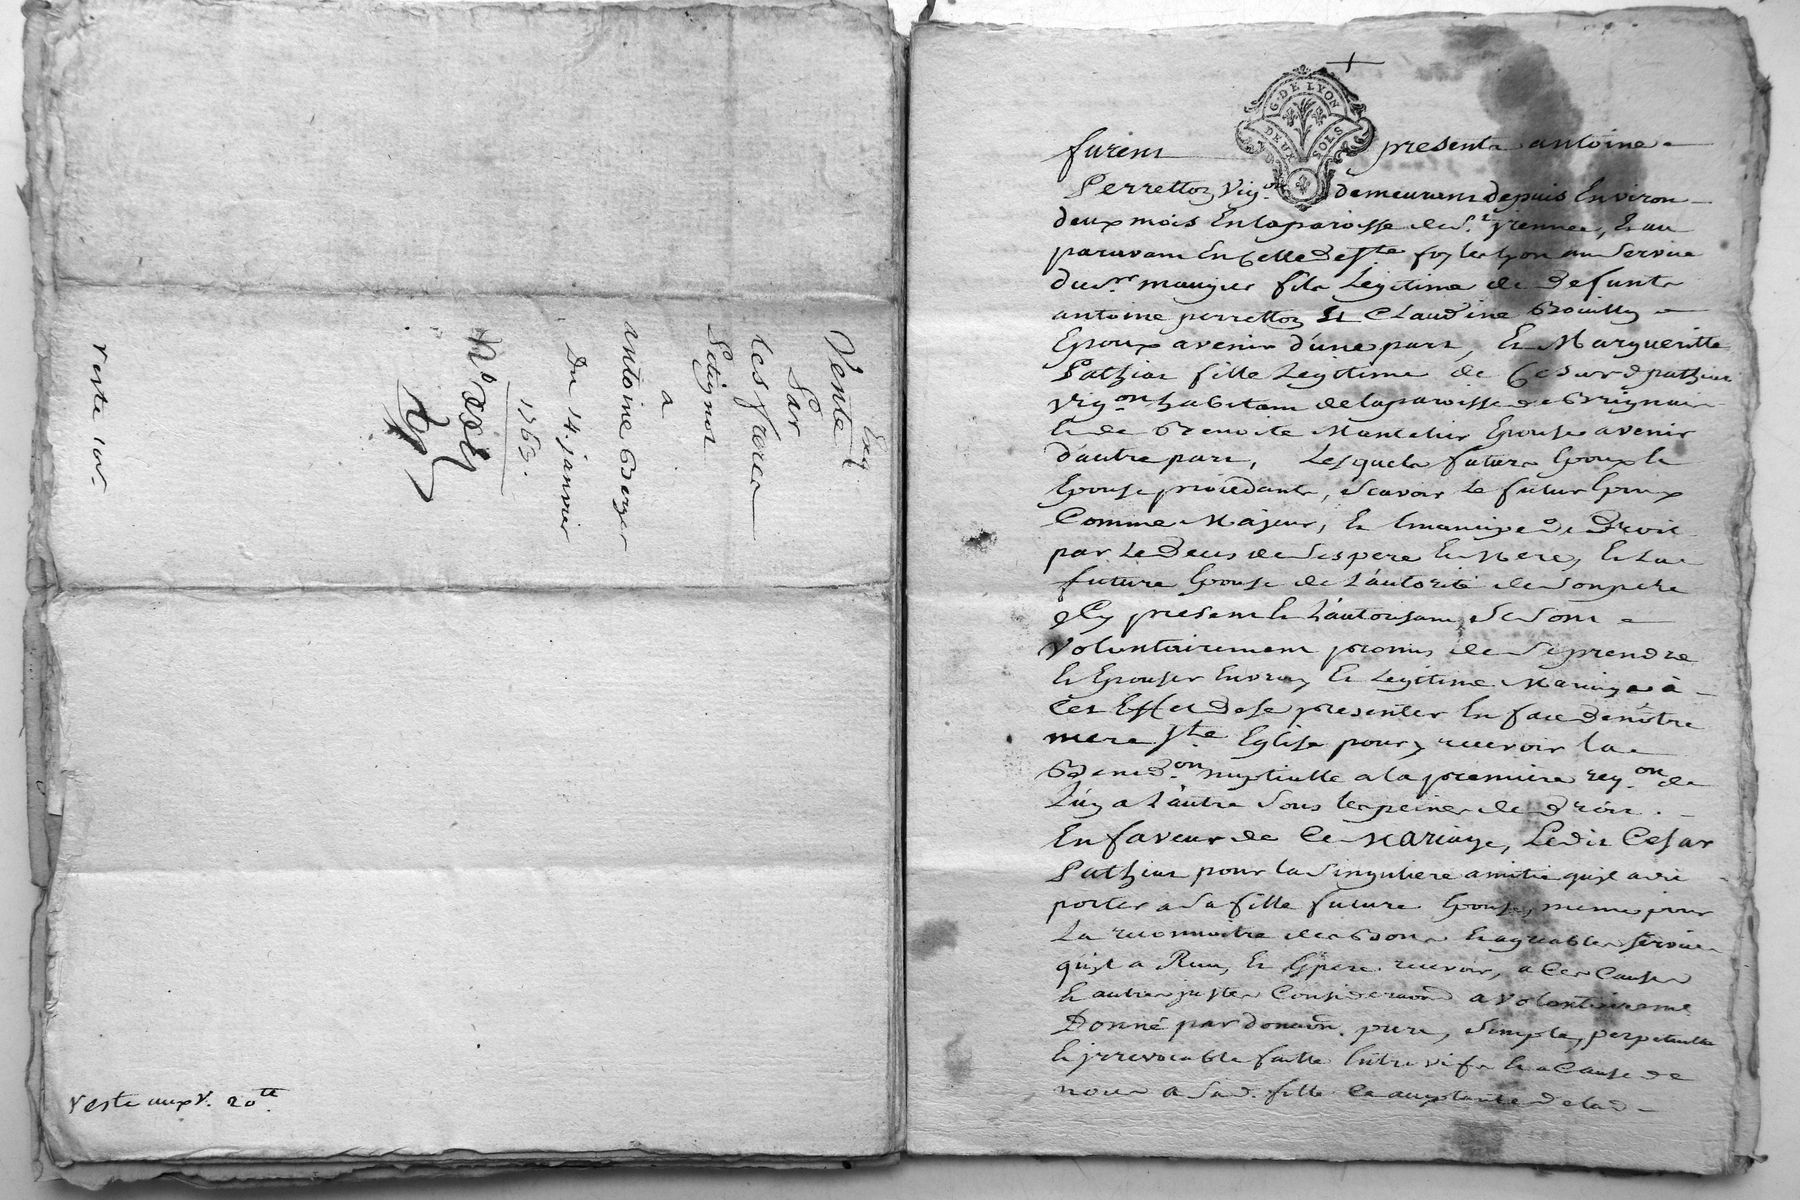 Vente
Exp
Par
les freres
Petignot
a
antoine Berger
Du 14. janvier
1763.
reste 10s
reste aux v. 20tt
G. DE LYON
DEUX SOLS
furent presents antoine
Perrettoz Vigon demeurant depuis Environ
deux mois En la paroisse de St jrennee, Et au
paravant En Celle de Ste foy les lyon au Service
du Sr maugier fils Legitime de defunts
antoine perrettoz Et Claudine Bouilly
Epoux avenir d'une part, Et Margueritte
Pathiot fille Legitime de Cesard pathiot
vigon habitant de la paroisse de Brignais
Et de Benoite Mantelier Epouse avenir
d'autre part, Lesquels futurs Epoux Et
Epouse procedants, scavoir Le futur Epoux
Comme Majeur, Et Emancipé de Droit
par Le Deces de Ses pere Et Mere, Et La
future Epouse de L'autorité de Son pere
Icy present Et L'autorisant, Se Sont
volontairement promis de Se prendre
Et Epouser En vray Et Legitime Mariage à
Cet Effet de Se presenter En face de nôtre
mere Ste Eglise pour y recevoir la
Benedon nuptialle a la premiere reqon de
L'un a L'autre Sous les peines de Droit.
En faveur de Ce Mariage, Ledit Cesar
Pathiot pour la Singuliere amitié qu'il a dit
porter a Sa fille future Epouse, meme pour
La reconnoitre des Bons Et agreables Services
qu'il a Receu, Et Espere recevoir, a Ces Causes
Et autres justes Considerations a volontairement
Donné par donaon pure, Simple, perpetuelle
Et jrrevocable faitte Entre vifs Et a Cause de
noces a Sad. fille Ce acceptante de lad